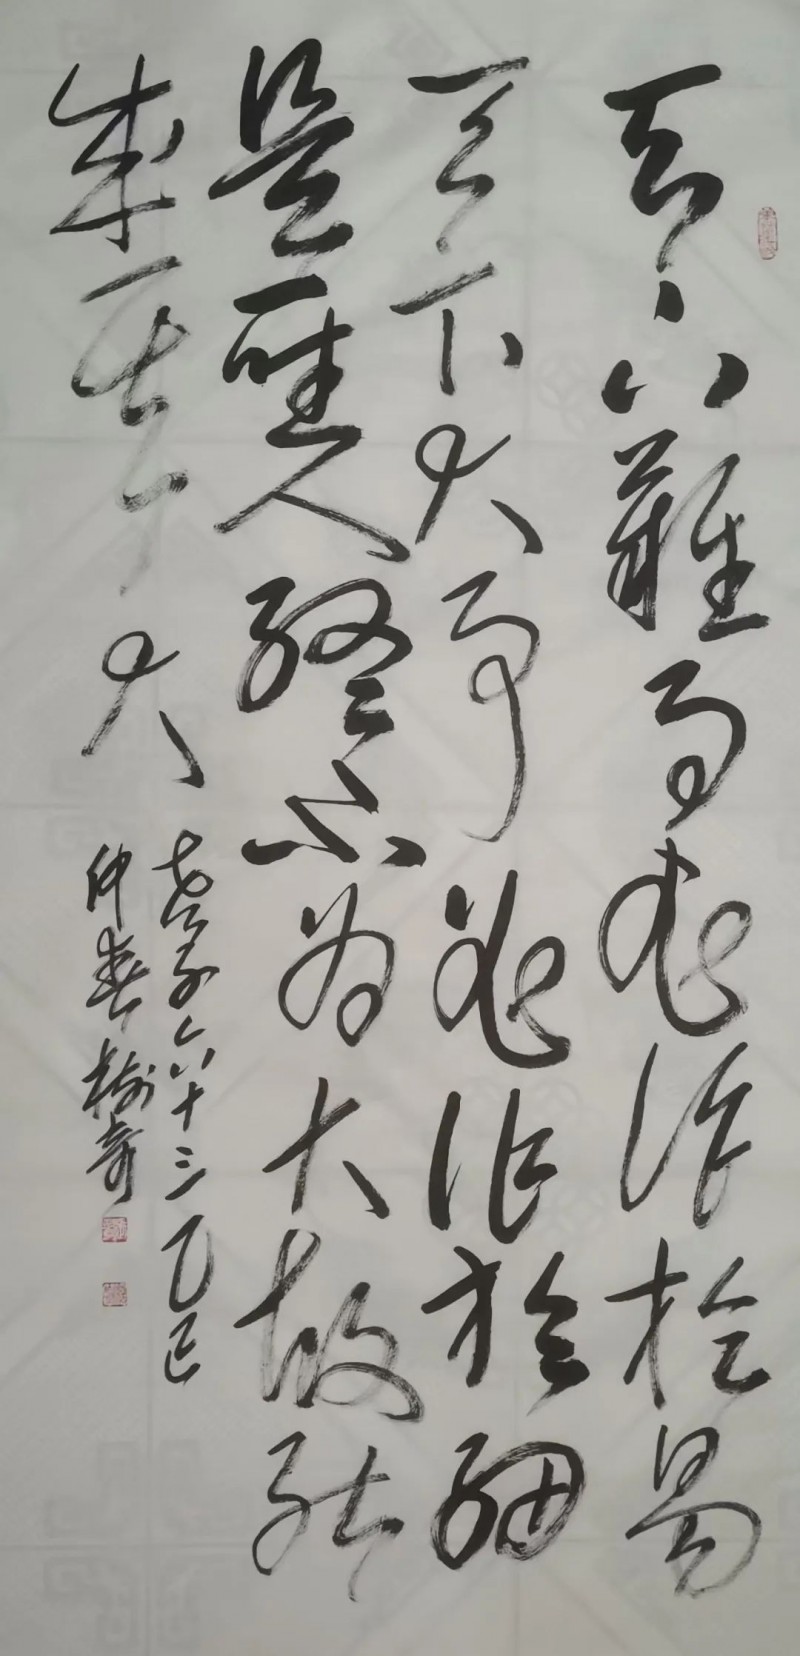 天下難事必作於易
天下大事必作於細
是以聖人終不為大故能
成其大
老子六十三乙巳
仲春樹奇